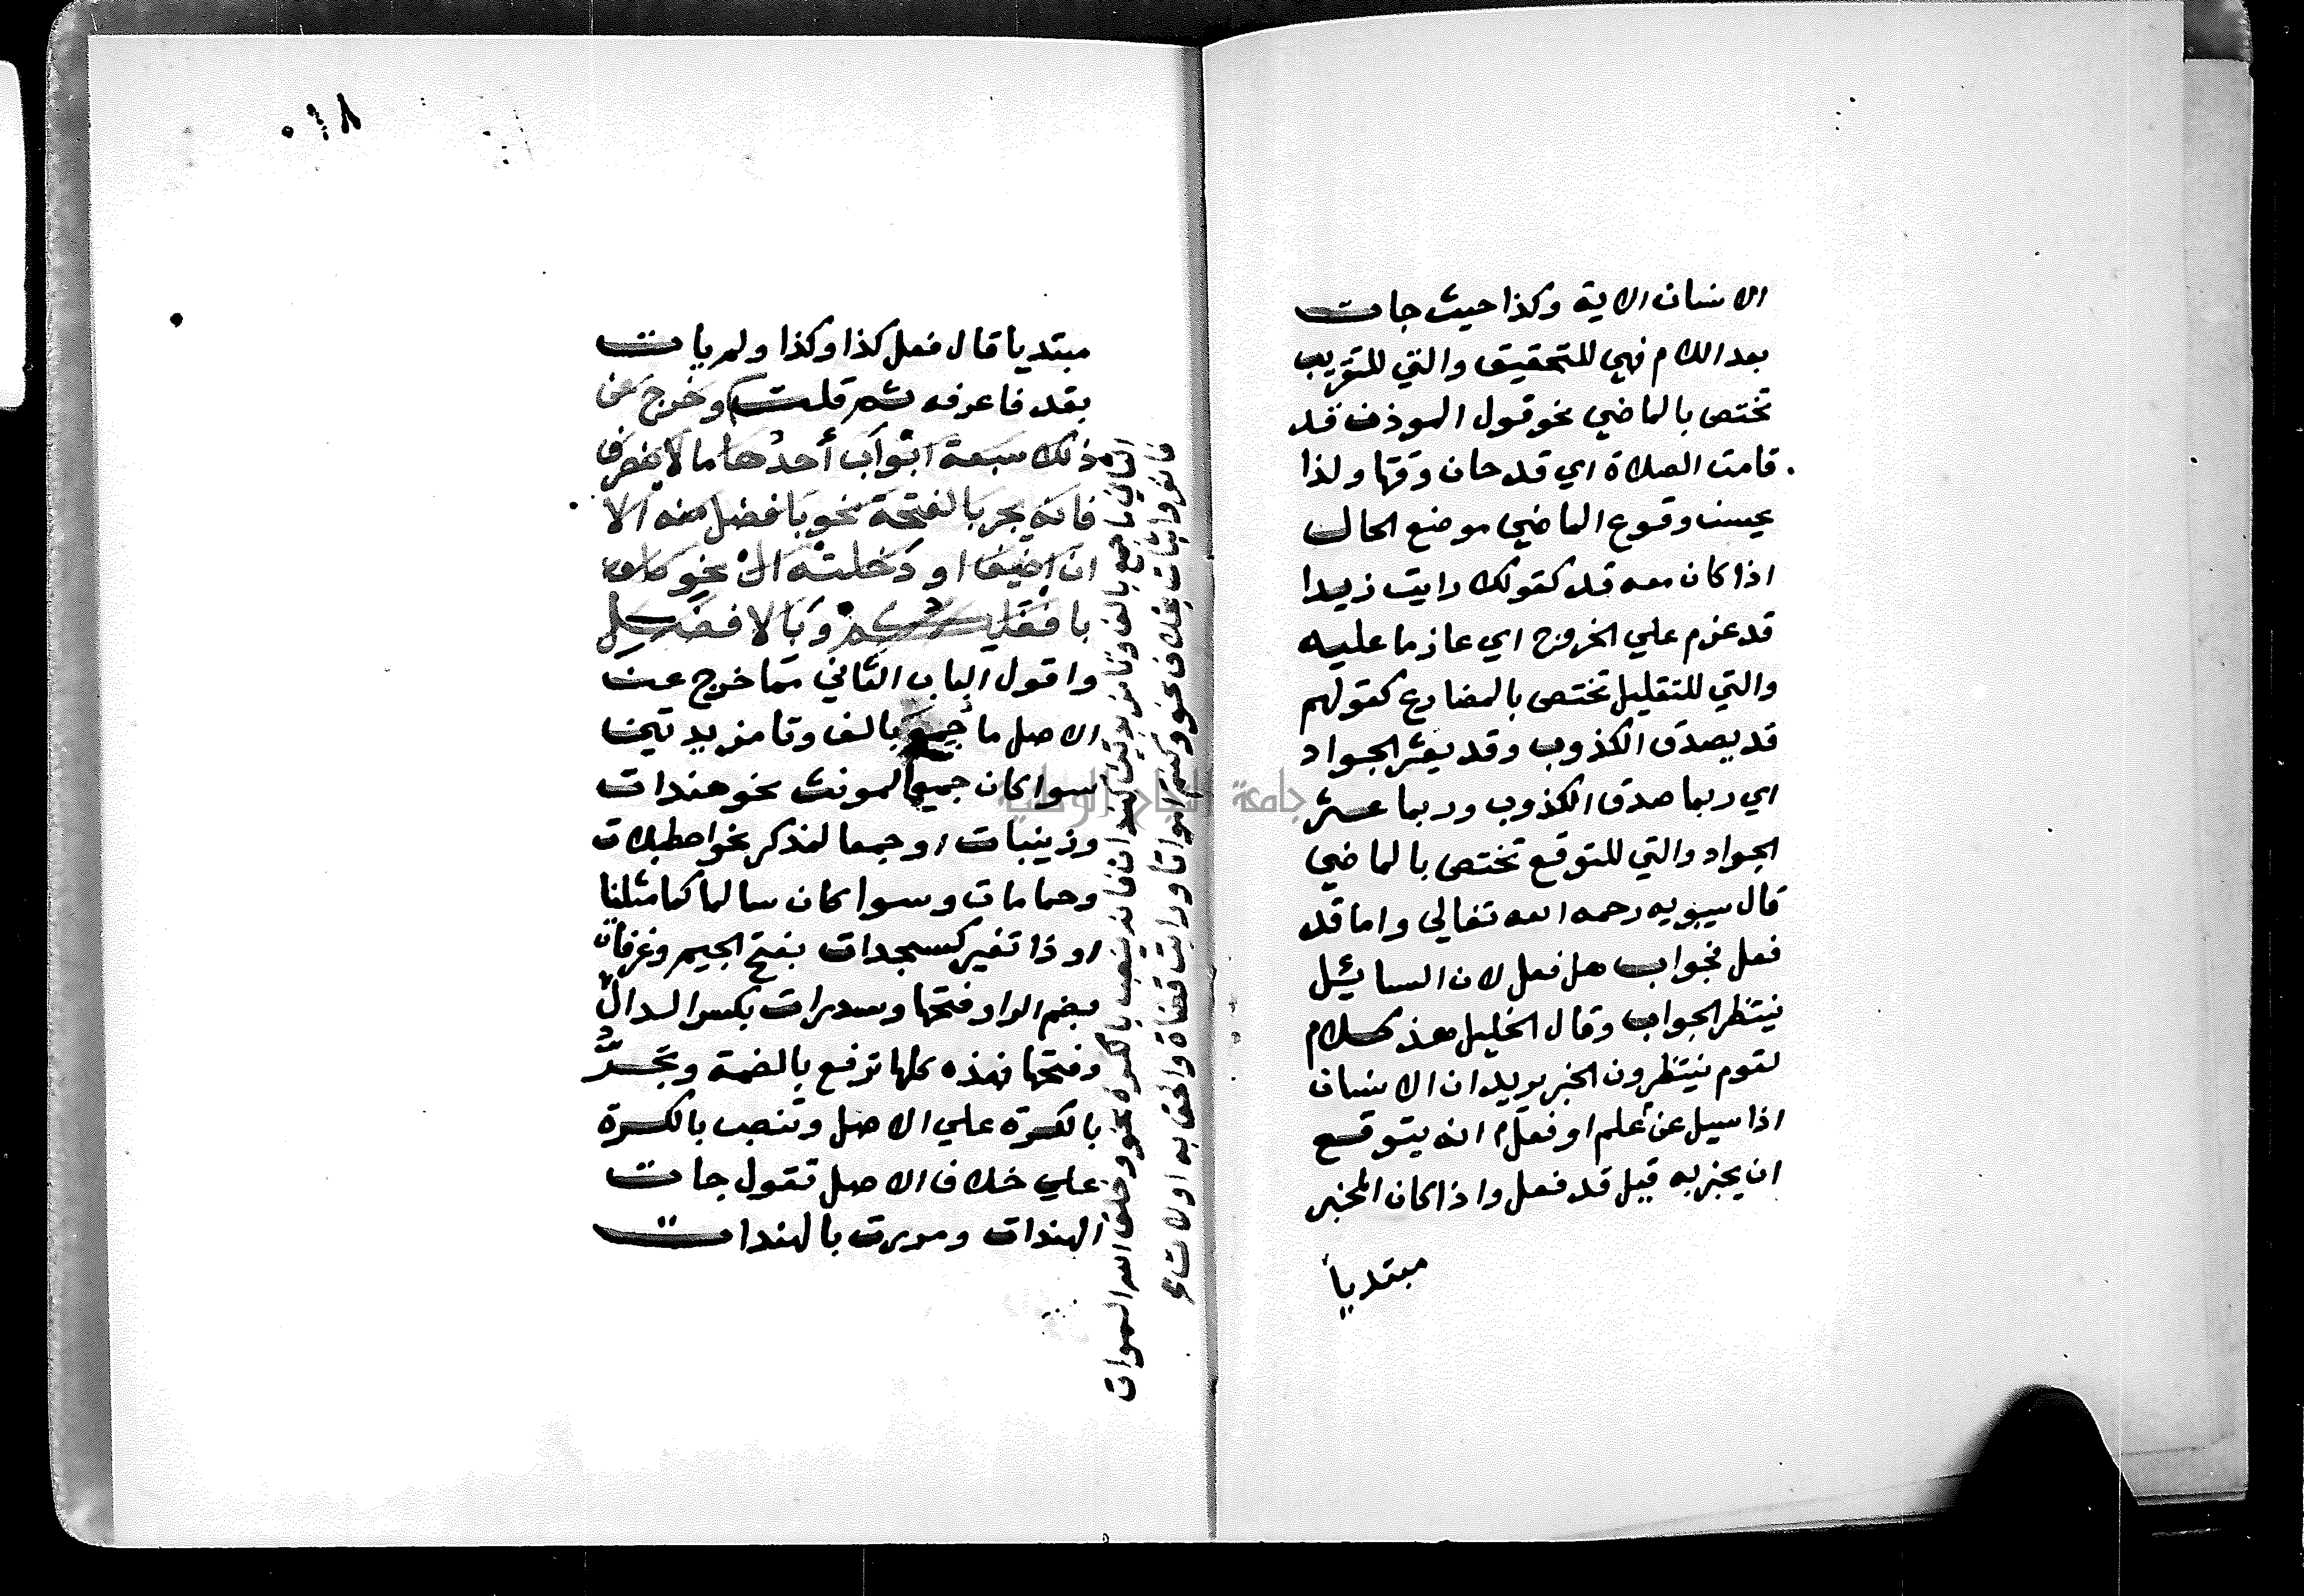 الانسان الاية وكذا حيث جات
بعد اللام فهي للتحقيق والتي للتقريب
تختص بالماضي نحو قول الموذن قد
قامت الصلاة اي قد حان وقتها ولذا
يحسن وقوع الماضي موضع الحال
اذا كان معه قد كقولك رايت زيدا
قد عزم علي الخروج اي عازما عليه
والتي للتقليل تختص بالمضارع كقولهم
قد يصدق الكذوب وقد يعثر الجواد
اي ربما صدق الكذوب وربما عثر
الجواد والتي للتوقع تختص بالماضي
قال سيبويه رحمه الله تعالي واما قد
فعل فجواب هل فعل لان السايئل
ينتظر الجواب وقال الخليل هذ كلام
لقوم ينتظرون الخبر يريد ان الانسان
اذا سيل عن علم او فعل انه يتوقع
ان يخبر به قيل قد فعل واذا كان المخبر
مبتدياً
٠١٨
مبتديا قال فعل كذا وكذا ولم يات
بقد فاعرفه ثم قلت وخرج عن
ذلك سبعة ابواب أحدها ما لا ينصرف
فانه يجر بالفتحة نحو بافضل منه الا
ان اضيف او دخلته ال نحو
بافضلكم وبالافضل
واقول الباب الثاني مما خرج عن
الاصل ما جمع بالف وتا مزيدتين
سوا كان جمعا لمونث نحو هندات
وزينبات او جمعا لمذكر نحو اصطبلات
وحمامات وسوا كان سالما كما مثلنا
او ذا تغير كسجدات بفتح الجيم وغرفات
بضم الرا وفتحها وسدرات بكسر الدال
وفتحها فهذه كلها ترفع بالضمة وتجرُّ
بالكسرة علي الاصل وتنصب بالكسرة
علي خلاف الاصل تقول جات
الهندات ومررت بالهندات
الثاني ما جمع بالف وتا مزيدتين كهندات فانه ينصب بالكسرة نحو وخلق الله السموات
فانفروا ثبات بخلاف نحو وكنتم امواتا ورايت قضاة والحق به اولات
جامعة النجاح الوطنية